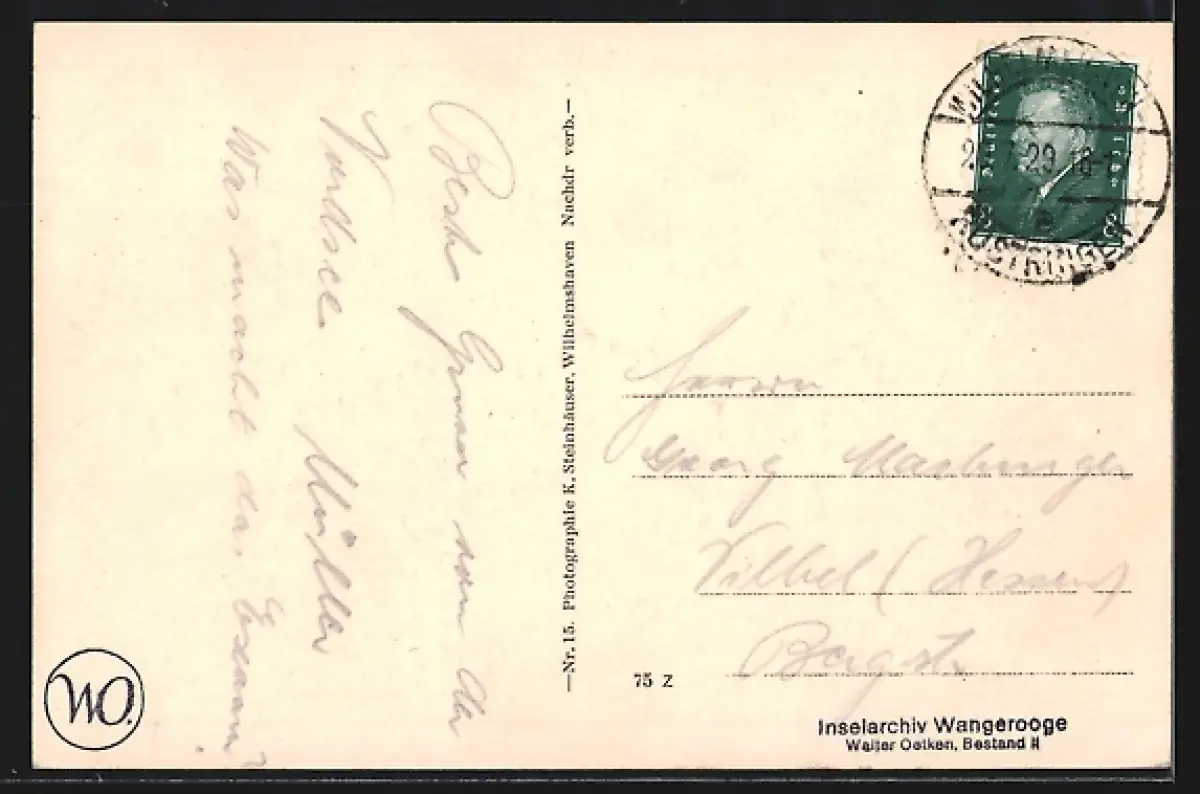 Beste Grüsse von der
Nordsee. Müller
Was macht das Examen?
—Nr. 15. Photographie K. Steinhäuser, Wilhelmshaven Nachdr verb.—
29 18-1
RÜSTRINGEN
8 8
Herrn
Georg
Vilbel (Hessen)
Bergstr
75 Z
Inselarchiv Wangerooge
Walter Oetken, Bestand II
WO.